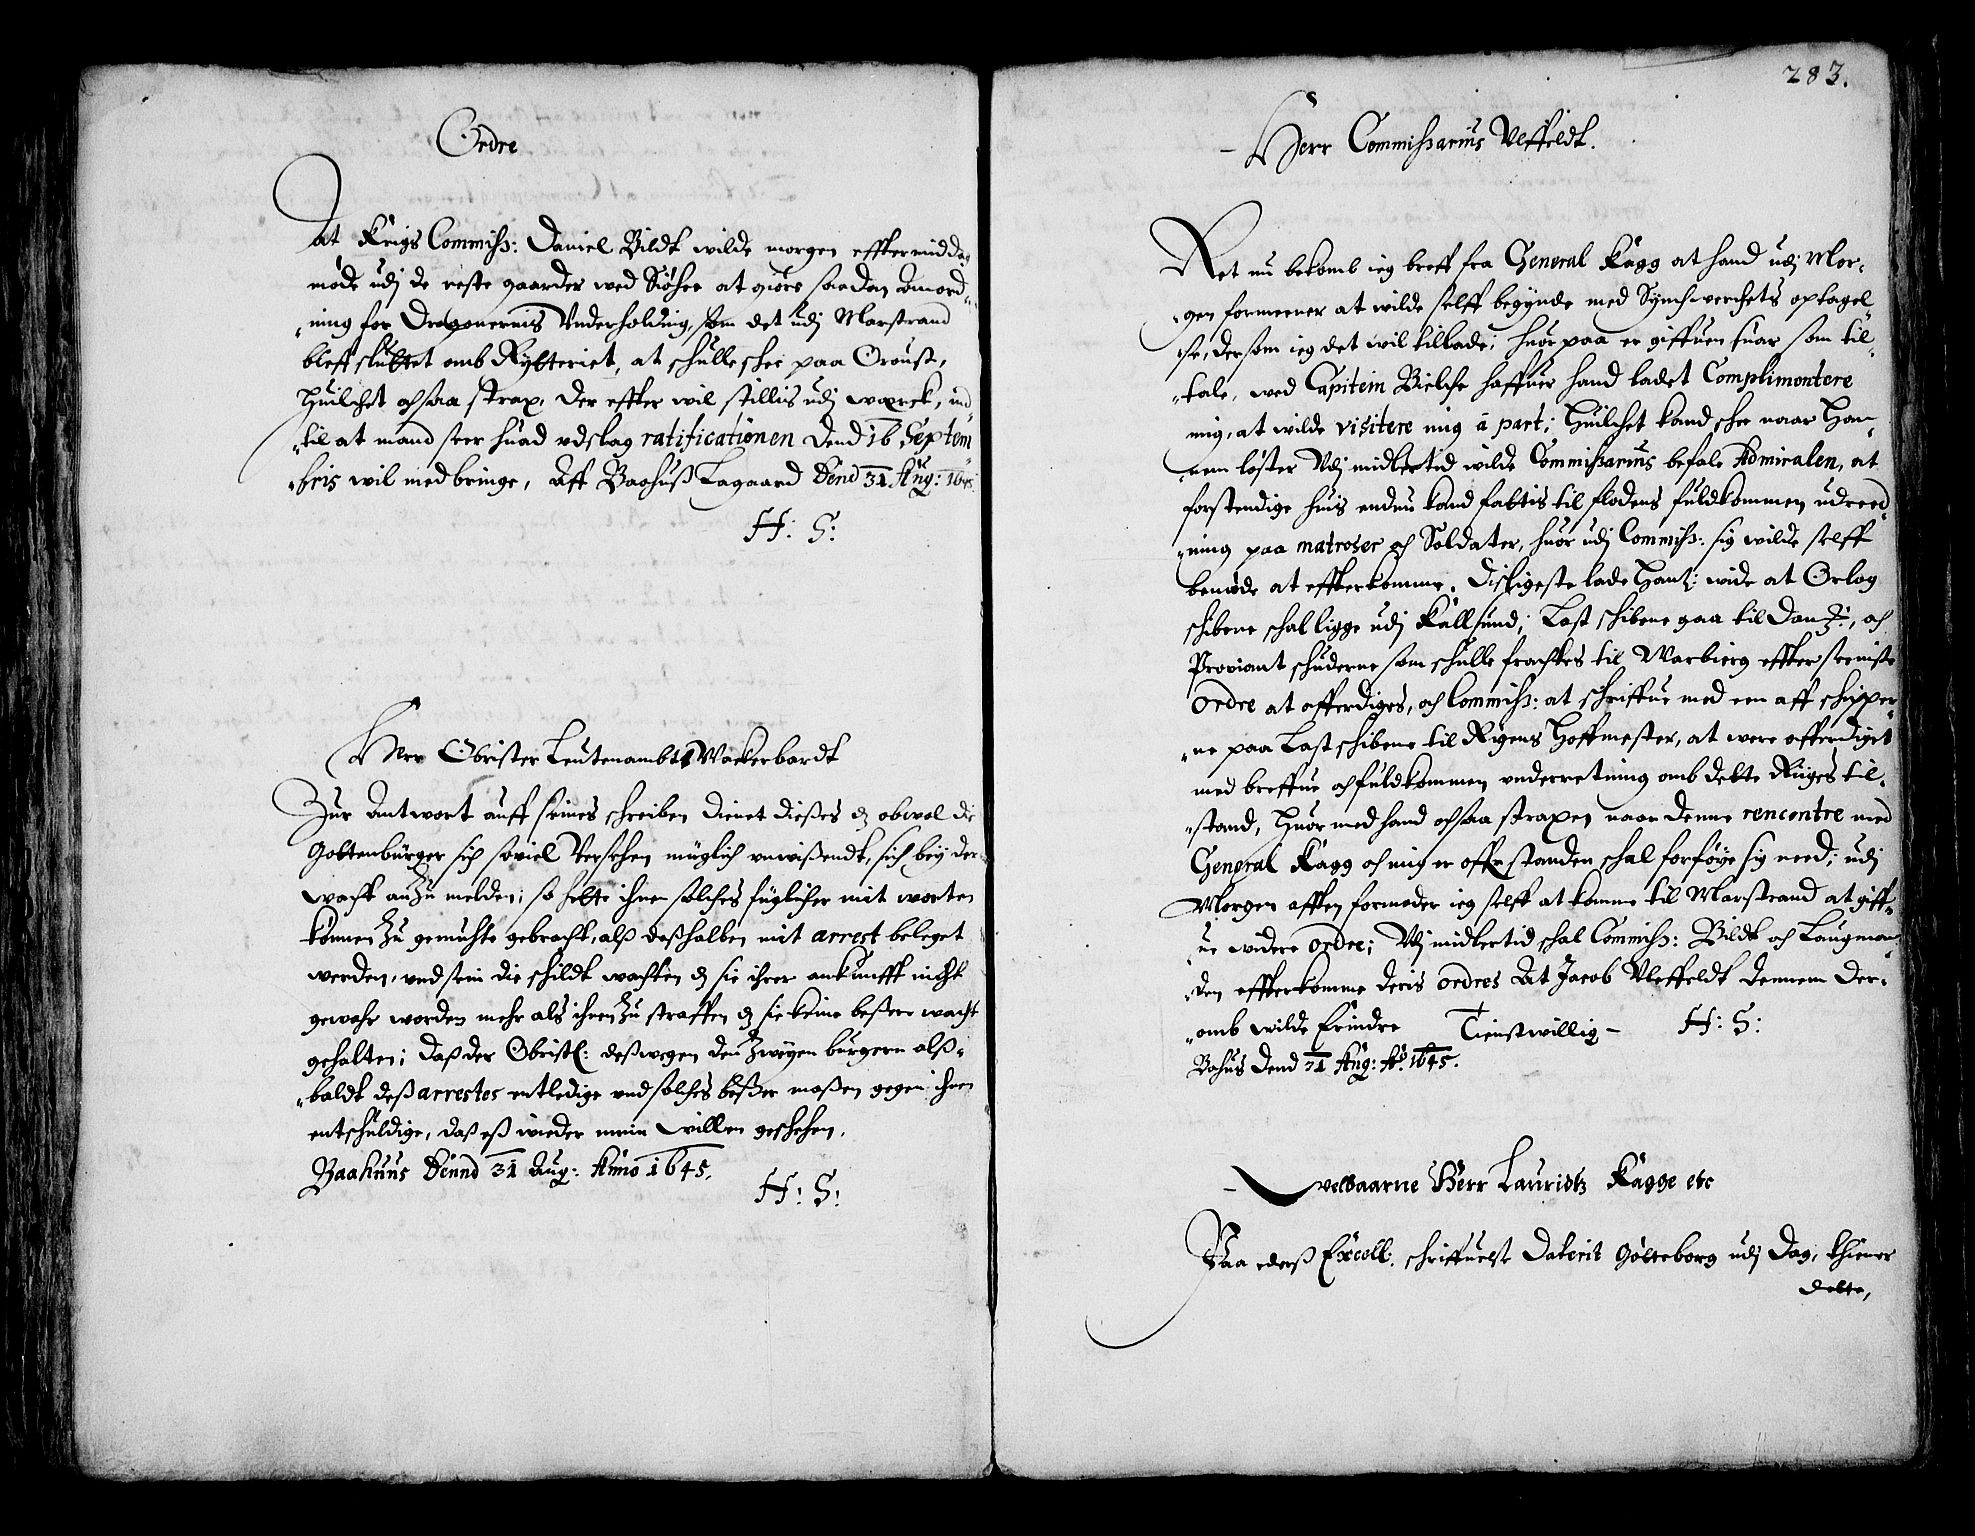 Ordre
At Krigs Commiss: Daniel Bildt wilde morgen effter middag
møde udj de reste gaarder wed Siøsee at giøre saadan anord-
ning for Dragonernis Underholding, som det udj Marstrand
bleff sluttet omb Rytteriet, at schulle schee paa Oroust,
Huilchet ochsaa strax, der effter wil stillis udj werck, ind-
til at mand seer huad udslag ratificationen Dend 16 Septem-
bris wil medbringe, Aff Baahuss Lagaard Dend 31 Aug: 1645.
H: S:
Herr Obrister Leutenambt Wackerbardt
Zur Antwort auff seines schreiben dienet dieses dz obwol die
Gottenbürger sich soviel Versehen müglich unwissendt, sich bey der
wacht anzu melden; so hette ihnen solches füglicher mit worten
können zu gemuhte gebracht, alss desshalben mit arrest beleget
werden, und sein die schildt wachten dz sie ihrer ankunfft nicht
gewahr worden mehr als ihnen zu straffen dz sie keine bessere wacht
gehalten; Dass der Obrist: desswegen den zweyen burgern alss-
baldt dess arrestes entledige und solches besser massen gegen ihnen
entschuldige, dass ess wieder mein willen geschehen.
Baahuus Dennd 31 Aug: Anno 1645.
H: S:
283.
Herr Commissarius Ulffeldt.
Ret nu bekomb ieg breff fra General Kagg at hand udj Mor-
gen formeener at wilde selff begynde med Synchwerchets optagel-
se, dersom ieg det wil tillade; huor paa er giffuen suar som til-
tale, wed Capitein Bielche haffuer hand ladet Complimentere
mig, at wilde visitere mig á part; Huilchet kand schee naar Han-
nem løster Udj midlertid wilde Commissarius befale Admiralen, at
forstendige huis endnu kand fattis til flodens fuldkommen udreed-
ning paa matroser och Soldater, huor udj Commiss: sig wilde selff
bemøde at effterkomme. Disligeste lade Hantz: wide at Orlog
schibene schal ligge udj Kallsund; Last schibene gaa til Dantz:, och
Proviant schuderne som schulle frachtes til Warbierg effter seeniste
Ordre at afferdiges, och Commiss: at schriffue med een aff schipper-
ne paa Last schibene til Rigens Hoffmester, at were afferdiget
med breffue och fuldkommen underretning omb dette Rigges til-
stand, Huor med hand ochsaa straxen naar denne rencontre med
General Kagg och mig er offr standen schal forføye sig need; udj
Morgen afften formoder ieg selff at komme til Marstrand at giff-
ue widere ordre; Udj midlertid schal Commiss: Bildt och Laugman-
den effterkomme deris ordres At Jacob Uleffeldt dennem der-
omb wilde Erindre Tienstwillig H: S:
Bohus Dend 31 Aug: Ao. 1645.
Welbaarne Herr Lauridtz Kagge etc
Paa eders Excell: schriffuelse Daterit Gøtteborg udj Dag, thiener
dette,